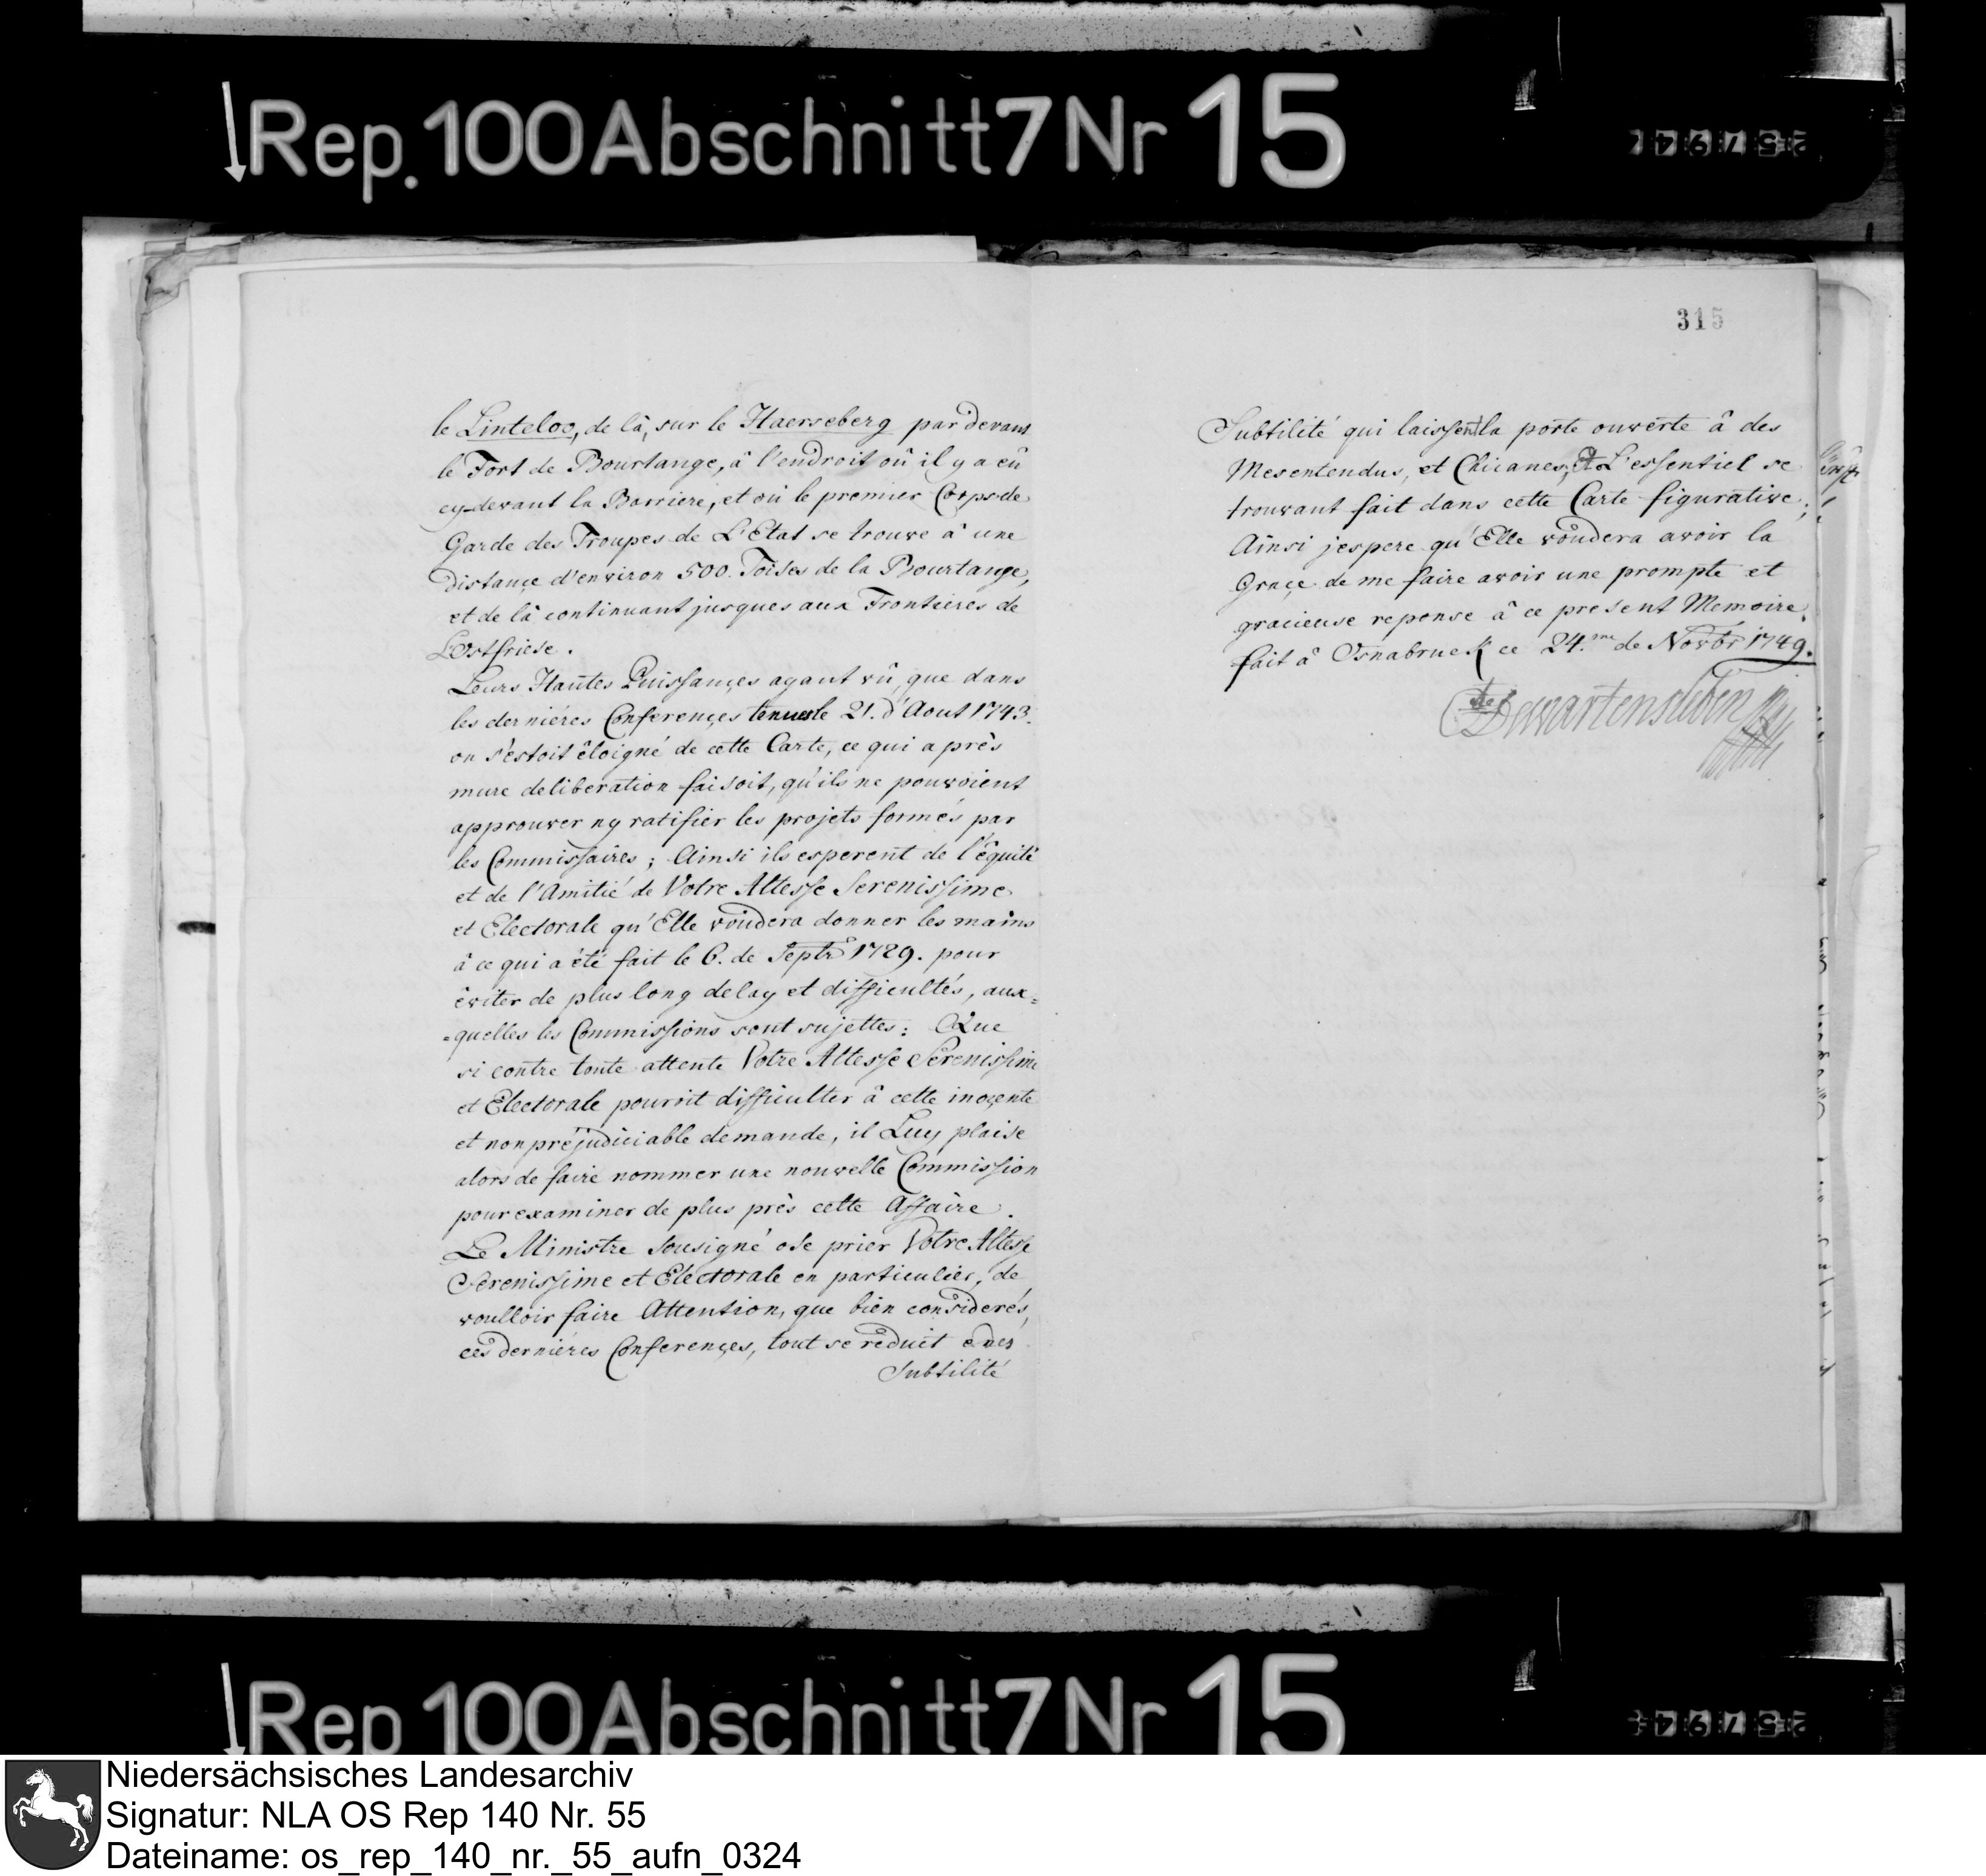 Rep. 100 Abschnitt 7 Nr 15
le Linteloo, de lâ, sur le Haerseberg par devant
le Fort de Bourtange, â l'endroit oû il y a eû
cy-devant la Barriere, et où le premier Corps de
Garde des Troupes de L'Etat se trouve â une
distançe d'environ 500. Toises de la Bourtange,
et de lâ continuant jusques aux Frontieres de
L'Ostfriese.
Leurs Hautes Puissançes ayant vû, que dans
les derniéres Conferençes tenues le 21. d'Aout 1743.
on s'estoit êloigné de cette Carte, ce qui après
mure deliberation faisoit, qu'ils ne pouvoient
approuver ny ratifier les projets formés par
les Commissaires; Ainsi ils esperent de l'êquité
et de l'Amitié de Votre Altesse Serenissime
et Electorale qu'Elle voudera donner les mains
â ce qui a été fait le 6. de Septbr 1729. pour
êviter de plus long delay et difficultés, aux=
=quelles les Commissions sont sujettes: Que
si contre toute attente Votre Altesse Serenissime
et Electorale pouroit difficulter â cette inoçente
et non préjudiciable demande, il Luy plaise
alors de faire nommer une nouvelle Commission
pour examiner de plus près cette Affaire.
Le Ministre sousigné ose prier Votre Altesse
Serenissime et Electorale en particulier, de
voulloir faire Attention, que bien considerés,
ces derniéres Conferençes, tout se rêduit a des
Subtilité
315
Subtilité qui laissent la porte ouverte â des
Mesentendus, et Chicanes, et L'essentiel se
trouvant fait dans cette Carte figurative;
Ainsi j'espere qu'Elle voudera avoir la
Graçe de me faire avoir une prompte et
gracieuse reponse â ce present Memoire.
fait â Osnabruck ce 24.me de Novbr 1749.
De Wartensleben
Rep 100 Abschnitt 7 Nr 15
Niedersächsisches Landesarchiv
Signatur: NLA OS Rep 140 Nr. 55
Dateiname: os_rep_140_nr._55_aufn_0324